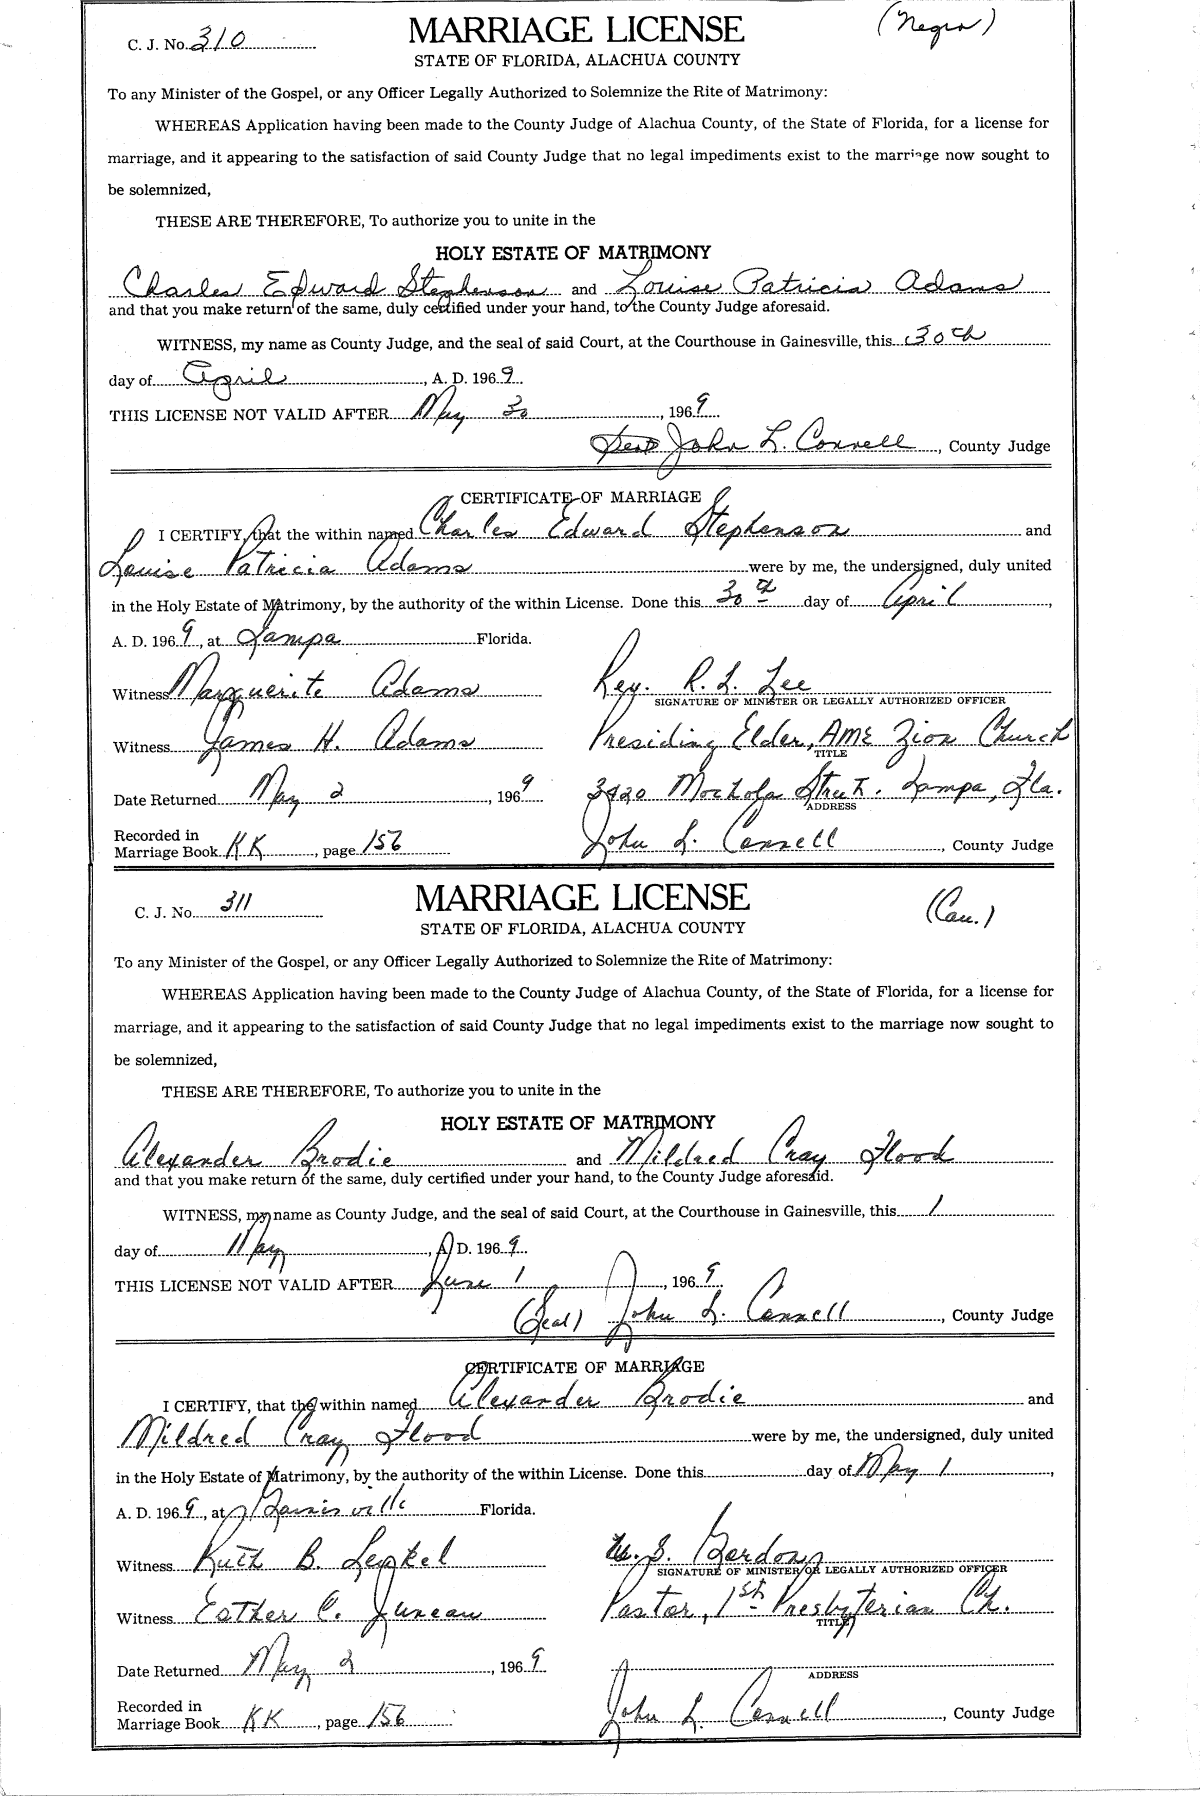 C. J. No. 310 MARRIAGE LICENSE (Negro)
STATE OF FLORIDA, ALACHUA COUNTY
To any Minister of the Gospel, or any Officer Legally Authorized to Solemnize the Rite of Matrimony:
WHEREAS Application having been made to the County Judge of Alachua County, of the State of Florida, for a license for
marriage, and it appearing to the satisfaction of said County Judge that no legal impediments exist to the marriage now sought to
be solemnized,
THESE ARE THEREFORE, To authorize you to unite in the
HOLY ESTATE OF MATRIMONY
Charles Edward Stephenson and Louise Patricia Adams
and that you make return of the same, duly certified under your hand, to the County Judge aforesaid.
WITNESS, my name as County Judge, and the seal of said Court, at the Courthouse in Gainesville, this 30th
day of April, A. D. 1969
THIS LICENSE NOT VALID AFTER May 30, 1969
John L. Connell, County Judge
CERTIFICATE OF MARRIAGE
I CERTIFY, that the within named Charles Edward Stephenson and
Louise Patricia Adams were by me, the undersigned, duly united
in the Holy Estate of Matrimony, by the authority of the within License. Done this 30th day of April,
A. D. 1969, at Tampa Florida.
Witness Marguerite Adams Rev. R. L. Lee
SIGNATURE OF MINISTER OR LEGALLY AUTHORIZED OFFICER
Witness James H. Adams Presiding Elder, AME Zion Church
TITLE
Date Returned May 2, 1969 Street. Tampa, Fla.
ADDRESS
Recorded in
Marriage Book KK, page 156 John L. Connell, County Judge
C. J. No. 311 MARRIAGE LICENSE (Cau.)
STATE OF FLORIDA, ALACHUA COUNTY
To any Minister of the Gospel, or any Officer Legally Authorized to Solemnize the Rite of Matrimony:
WHEREAS Application having been made to the County Judge of Alachua County, of the State of Florida, for a license for
marriage, and it appearing to the satisfaction of said County Judge that no legal impediments exist to the marriage now sought to
be solemnized,
THESE ARE THEREFORE, To authorize you to unite in the
HOLY ESTATE OF MATRIMONY
Alexander Brodie and Mildred Cray Flood
and that you make return of the same, duly certified under your hand, to the County Judge aforesaid.
WITNESS, my name as County Judge, and the seal of said Court, at the Courthouse in Gainesville, this 1
day of May, A. D. 1969
THIS LICENSE NOT VALID AFTER June 1, 1969
(Seal) John L. Connell, County Judge
CERTIFICATE OF MARRIAGE
I CERTIFY, that the within named Alexander Brodie and
Mildred Cray Flood were by me, the undersigned, duly united
in the Holy Estate of Matrimony, by the authority of the within License. Done this day of May 1,
A. D. 1969, at Gainsville Florida.
Witness Ruth B. U. S. Gordon
SIGNATURE OF MINISTER OR LEGALLY AUTHORIZED OFFICER
Witness Esther C. Juneau Pastor, 1st Presbyterian Ch.
TITLE
Date Returned May 2, 1969
ADDRESS
Recorded in
Marriage Book KK, page 156 John L. Connell, County Judge